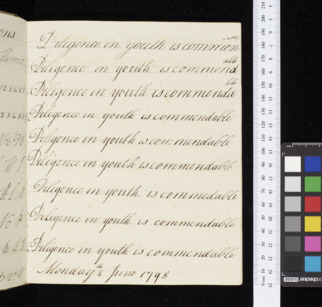 Diligence in youth is common
Diligence in youth is commend able
Diligence in youth is commenda ble
Diligence in youth is commendable
Diligence in youth is commendable
Diligence in youth is commendable
Diligence in youth is commedable
Diligence in youth is commendable
Diligence in youth is commendable
Monday June 1795